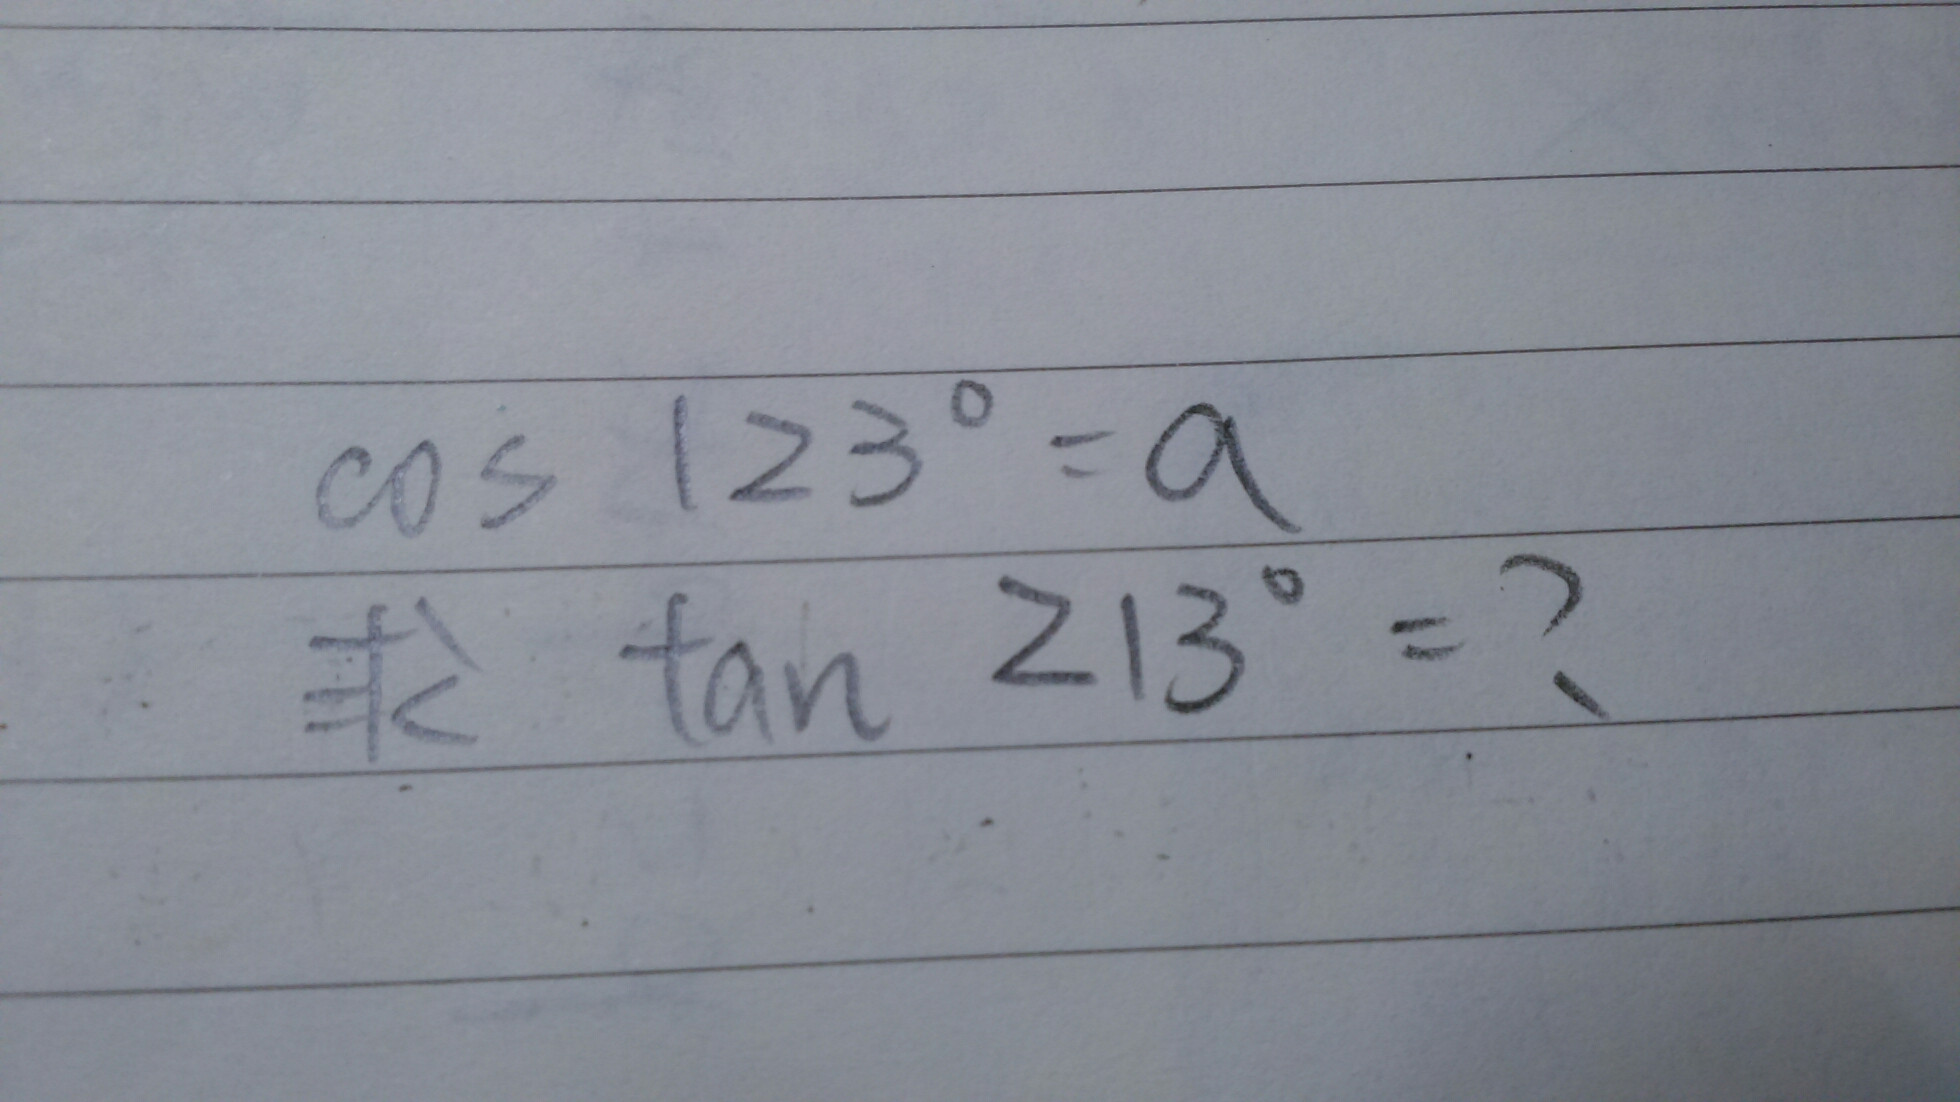 cos 123° = a
求 tan 213° = ?